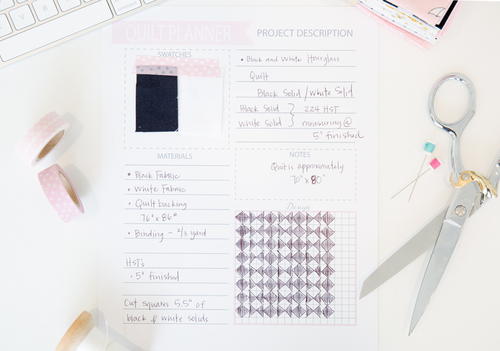 QUILT PLANNER
PROJECT DESCRIPTION
SWATCHES
• Black and White Hourglass
Quilt
Black Solid / White Solid
Black Solid } 224 HST
White Solid } measuring @
5" finished
MATERIALS
• Black Fabric
• White Fabric
• Quilt backing
76" x 86"
• Binding - 2/3 yard
HSTs
• 5" finished
Cut squares 5.5" of
black & white solids
NOTES
Quilt is approximately
70" x 80"
Design